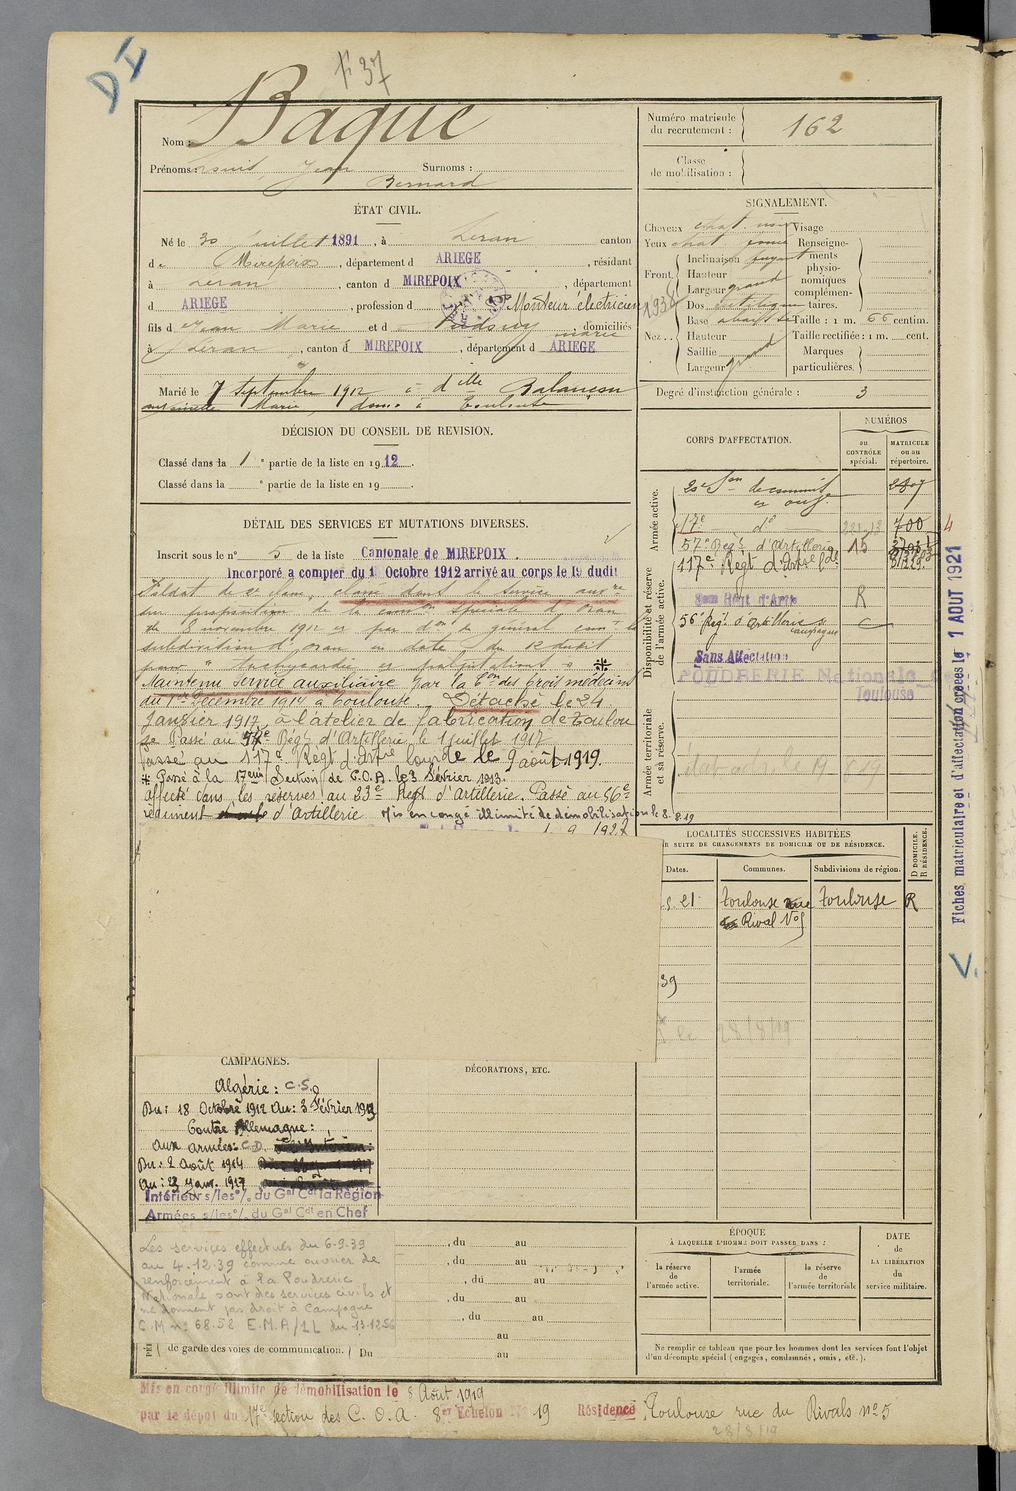 DI
F 37
Nom : Baqué
Prénoms : Jean Surnoms :
Bernard
Numéro matricule
du recrutement : 162
Classe
de mobilisation :
ÉTAT CIVIL.
Né le 30 Juillet 1891, à Léran canton
de Mirepoix, département d ARIEGE, résidant
à Léran, canton d MIREPOIX, département
d ARIEGE, profession d Monteur électricien 1934
fils d e Jean Marie et d marie domiciliés
à Léran, canton d MIREPOIX, département d ARIEGE
Marié le 7 Septembre 1912 à dlle Balança
Marie, dom. à Toulouse
SIGNALEMENT.
Cheveux chat. Visage
Yeux chat Renseigne-
Front Inclinaison fuyant ments
Hauteur physio-
Largeur grand nomiques
complémen-
Nez Dos taires.
Base Taille : 1 m. 66 centim.
Hauteur Taille rectifiée : 1 m. cent.
Saillie Marques
Largeur grand particulières.
Degré d'instruction générale : 3
DÉCISION DU CONSEIL DE REVISION.
Classé dans la 1 e partie de la liste en 1912.
Classé dans la e partie de la liste en 19
DÉTAIL DES SERVICES ET MUTATIONS DIVERSES.
Inscrit sous le n° 5 de la liste Cantonale de MIREPOIX.
Incorporé a compter du 1 Octobre 1912 arrivé au corps le 19 dudit
Soldat de 2e classe, classé dans le service aux.re
sur proposition de la comon spéciale d'Oran
du 8 novembre 1912 et par don du général comt la
subdivision d'Oran en date du 12 dudit
pour " tachycardie et palpitations "
Maintenu service auxiliaire par la Con des trois médecins
du 1er Décembre 1914 à Toulouse. Détaché le 24
Janvier 1917 à l'atelier de fabrication de Toulou
se Passé au 57e Régt d'Artillerie le 1 juillet 1917
Passé au 117e Régt d'Artrie lourde le 9 août 1919.
* Passé à la 17eme Section de C.O.A. le 3 Février 1913.
affecté dans les réserves au 23e Régt d'Artillerie. Passé au 56e
régiment d'Artillerie Mis en congé illimité de démobilisation le 8.8.19
CORPS D'AFFECTATION.
NUMÉROS
au
CONTRÔLE
spécial.
MATRICULE
ou au
répertoire.
Armée active.
20e Son de commis
et ouv. 2807
17e do 700 4
57e Régt d'Artillerie 15
Disponibilité et réserve
de l'armée active.
117e Régt d'Artrie lde
R
56e Régt d'Artillerie
campagne
Sans Affectation
POUDRERIE Nationale de
Toulouse
Armée territoriale
et sa réserve.
Fiches matriculaire et d'affectation créées le 1 AOUT 1921
V.
LOCALITÉS SUCCESSIVES HABITÉES
PAR SUITE DE CHANGEMENTS DE DOMICILE OU DE RÉSIDENCE.
Dates. Communes. Subdivisions de région.
D DOMICILE.
R RÉSIDENCE.
21 Toulouse rue Toulouse R
Rival No 5
39
le 28/8/19
CAMPAGNES.
Algérie : C.S.
Du : 18 Octobre 1912 Au : 3 Février 1913
Contre Allemagne :
aux armées : C.D.
Du : 2 Août 1914
au : 23 Janv. 1917
Intérieur s/les o/. du Gal Cdt la Région
Armées s/les o/. du Gal Cdt en Chef
DÉCORATIONS, ETC.
Les services effectués du 6-9-39
au 4.12.39 comme ouvrier de
renforcement à la Poudrerie
Nationale sont des services civils et
ne donnent pas droit à Campagne
C.M n° 68.58 E.M.A/1L du 13.12.56
, du au
, du au
, du au
, du au
, du au
au
de garde des voies de communication. Du au
ÉPOQUE
À LAQUELLE L'HOMME DOIT PASSER DANS :
la réserve
de l'armée active.
l'armée
territoriale.
la réserve
de l'armée territoriale
DATE
de
LA LIBÉRATION
du
service militaire.
Ne remplir ce tableau que pour les hommes dont les services font l'objet
d'un décompte spécial (engagés, condamnés, omis, etc.).
Mis en congé illimité de démobilisation le 8 Août 1919
par le dépot du 17e section des C.O.A. 8er Echelon No 19 Résidence Toulouse rue du Rivals n° 5
28/8/19